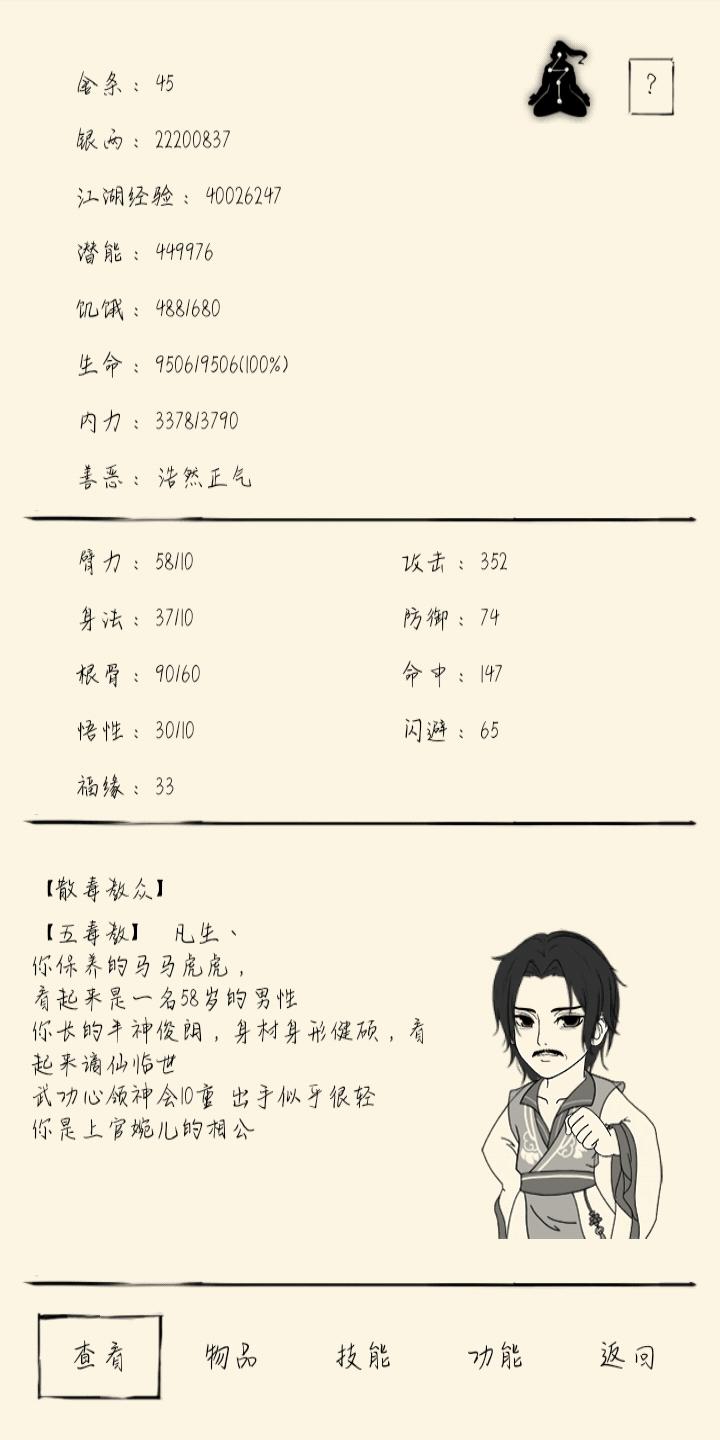 金条：45
?
银两：22200837
江湖经验：40026247
潜能：449976
饥饿：488/680
生命：9506/9506(100%)
内力：3378/3790
善恶：浩然正气
臂力：58/10 攻击：352
身法：37/10 防御：74
根骨：90/60 命中：147
悟性：30/10 闪避：65
福缘：33
【散毒教众】
【五毒教】 凡生、
你保养的马马虎虎，
看起来是一名58岁的男性
你长的丰神俊朗，身材身形健硕，看
起来谪仙临世
武功心领神会10重 出手似乎很轻
你是上官婉儿的相公
查看 物品 技能 功能 返回